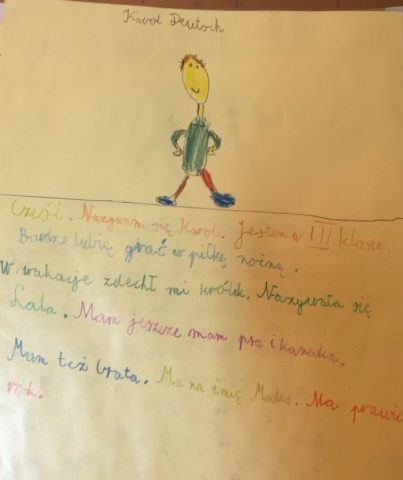 Karol Deutsch
Cześć. Nazywam się Karol. Jestem w III klasie.
Bardzo lubię grać w piłkę nożną.
W wakacje zdechł mi królik. Nazywała się
Lala. Mam jeszcze mam psa i kanarka.
Mam też brata. Ma na imię Maks. Ma prawie
rok.